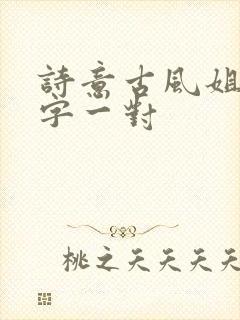 詩意古風姐
字一對
桃之夭夭夭夭